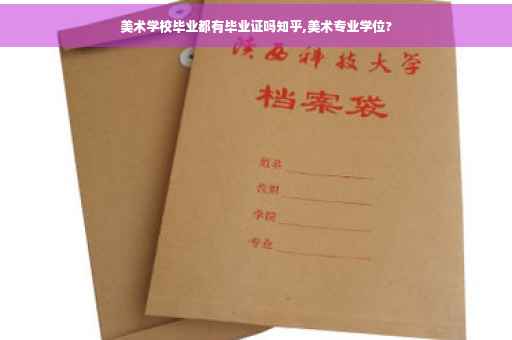 美术学校毕业都有毕业证吗知乎,美术专业学位?
陕西科技大学
档案袋
姓名
学院
专业